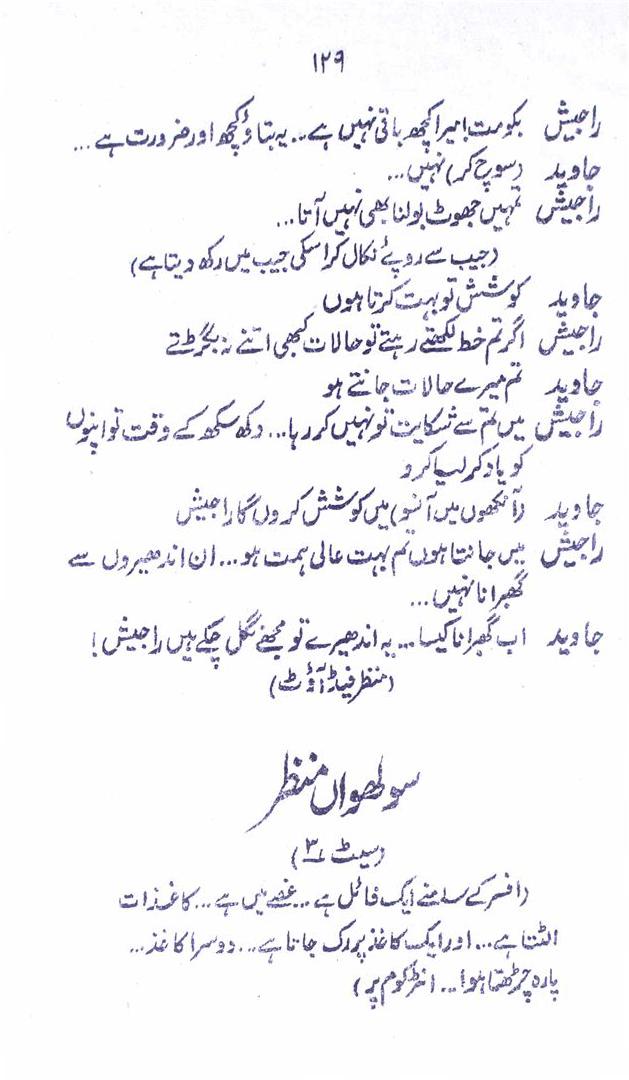 ۱۲۹
راجیش بکومت! میرا کچھ باقی نہیں ہے.. یہ بتاؤ کچھ اور ضرورت ہے...
جاوید (سوچ کر) نہیں...
راجیش تمہیں جھوٹ بولنا بھی نہیں آتا...
(جیب سے روپے نکال کر اسکی جیب میں رکھ دیتا ہے)
جاوید کوشش تو بہت کرتا ہوں
راجیش اگر تم خط لکھتے رہتے تو حالات کبھی اتنے نہ بگڑتے
جاوید تم میرے حالات جانتے ہو
راجیش میں تم سے شکایت تو نہیں کر رہا... دکھ سکھ کے وقت تو اپنوں
کو یاد کر لیا کرو
جاوید (آنکھوں میں آنسو) میں کوشش کروں گا راجیش
راجیش میں جانتا ہوں تم بہت عالی ہمت ہو... ان اندھیروں سے
گھبرانا نہیں...
جاوید اب گھبرانا کیسا... یہ اندھیرے تو مجھے نگل چکے ہیں راجیش!
(منظر فیڈ آؤٹ)
سولھواں منظر
(سیٹ ۳)
(افسر کے سامنے ایک فائل ہے... غصے میں ہے... کاغذات
الٹتا ہے... اور ایک کاغذ پر رک جاتا ہے... دوسرا کاغذ...
پارہ چڑھتا ہوا... انٹرکوم پر)